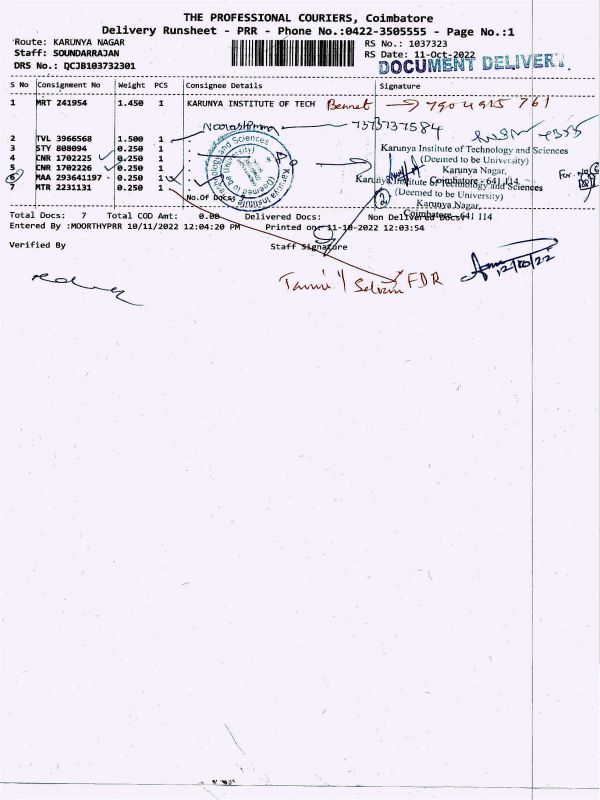 THE PROFESSIONAL COURIERS, Coimbatore
Delivery Runsheet - PRR - Phone No.:0422-3505555 - Page No.:1
Route: KARUNYA NAGAR RS No.: 1037323
Staff: SOUNDARRAJAN RS Date: 11-Oct-2022
DRS No.: QCJB103732301 DOCUMENT DELIVERY.
S No Consignment No Weight PCS Consignee Details Signature
1 MRT 241954 1.450 1 KARUNYA INSTITUTE OF TECH Bennet 7904915761
7373737584
2 TVL 3966568 1.500 1
3 STY 808094 0.250 1 Karunya Institute of Technology and Sciences
4 CNR 1702225 0.250 1 (Deemed to be University)
5 CNR 1702226 0.250 1 Karunya Nagar,
Coimbatore - 641 114
6 MAA 293641197 0.250 1 Karunya Institute of Technology and Sciences
7 MTR 2231131 0.250 1 (Deemed to be University)
No.Of Docs: Karunya Nagar,
Coimbatore - 641 114
Total Docs: 7 Total COD Amt: 0.00 Delivered Docs: Non Delivered Docs:
Entered By :MOORTHYPRR 10/11/2022 12:04:20 PM Printed on: 11-10-2022 12:03:54
Verified By Staff Signature
12/10/22
Selvam FDR